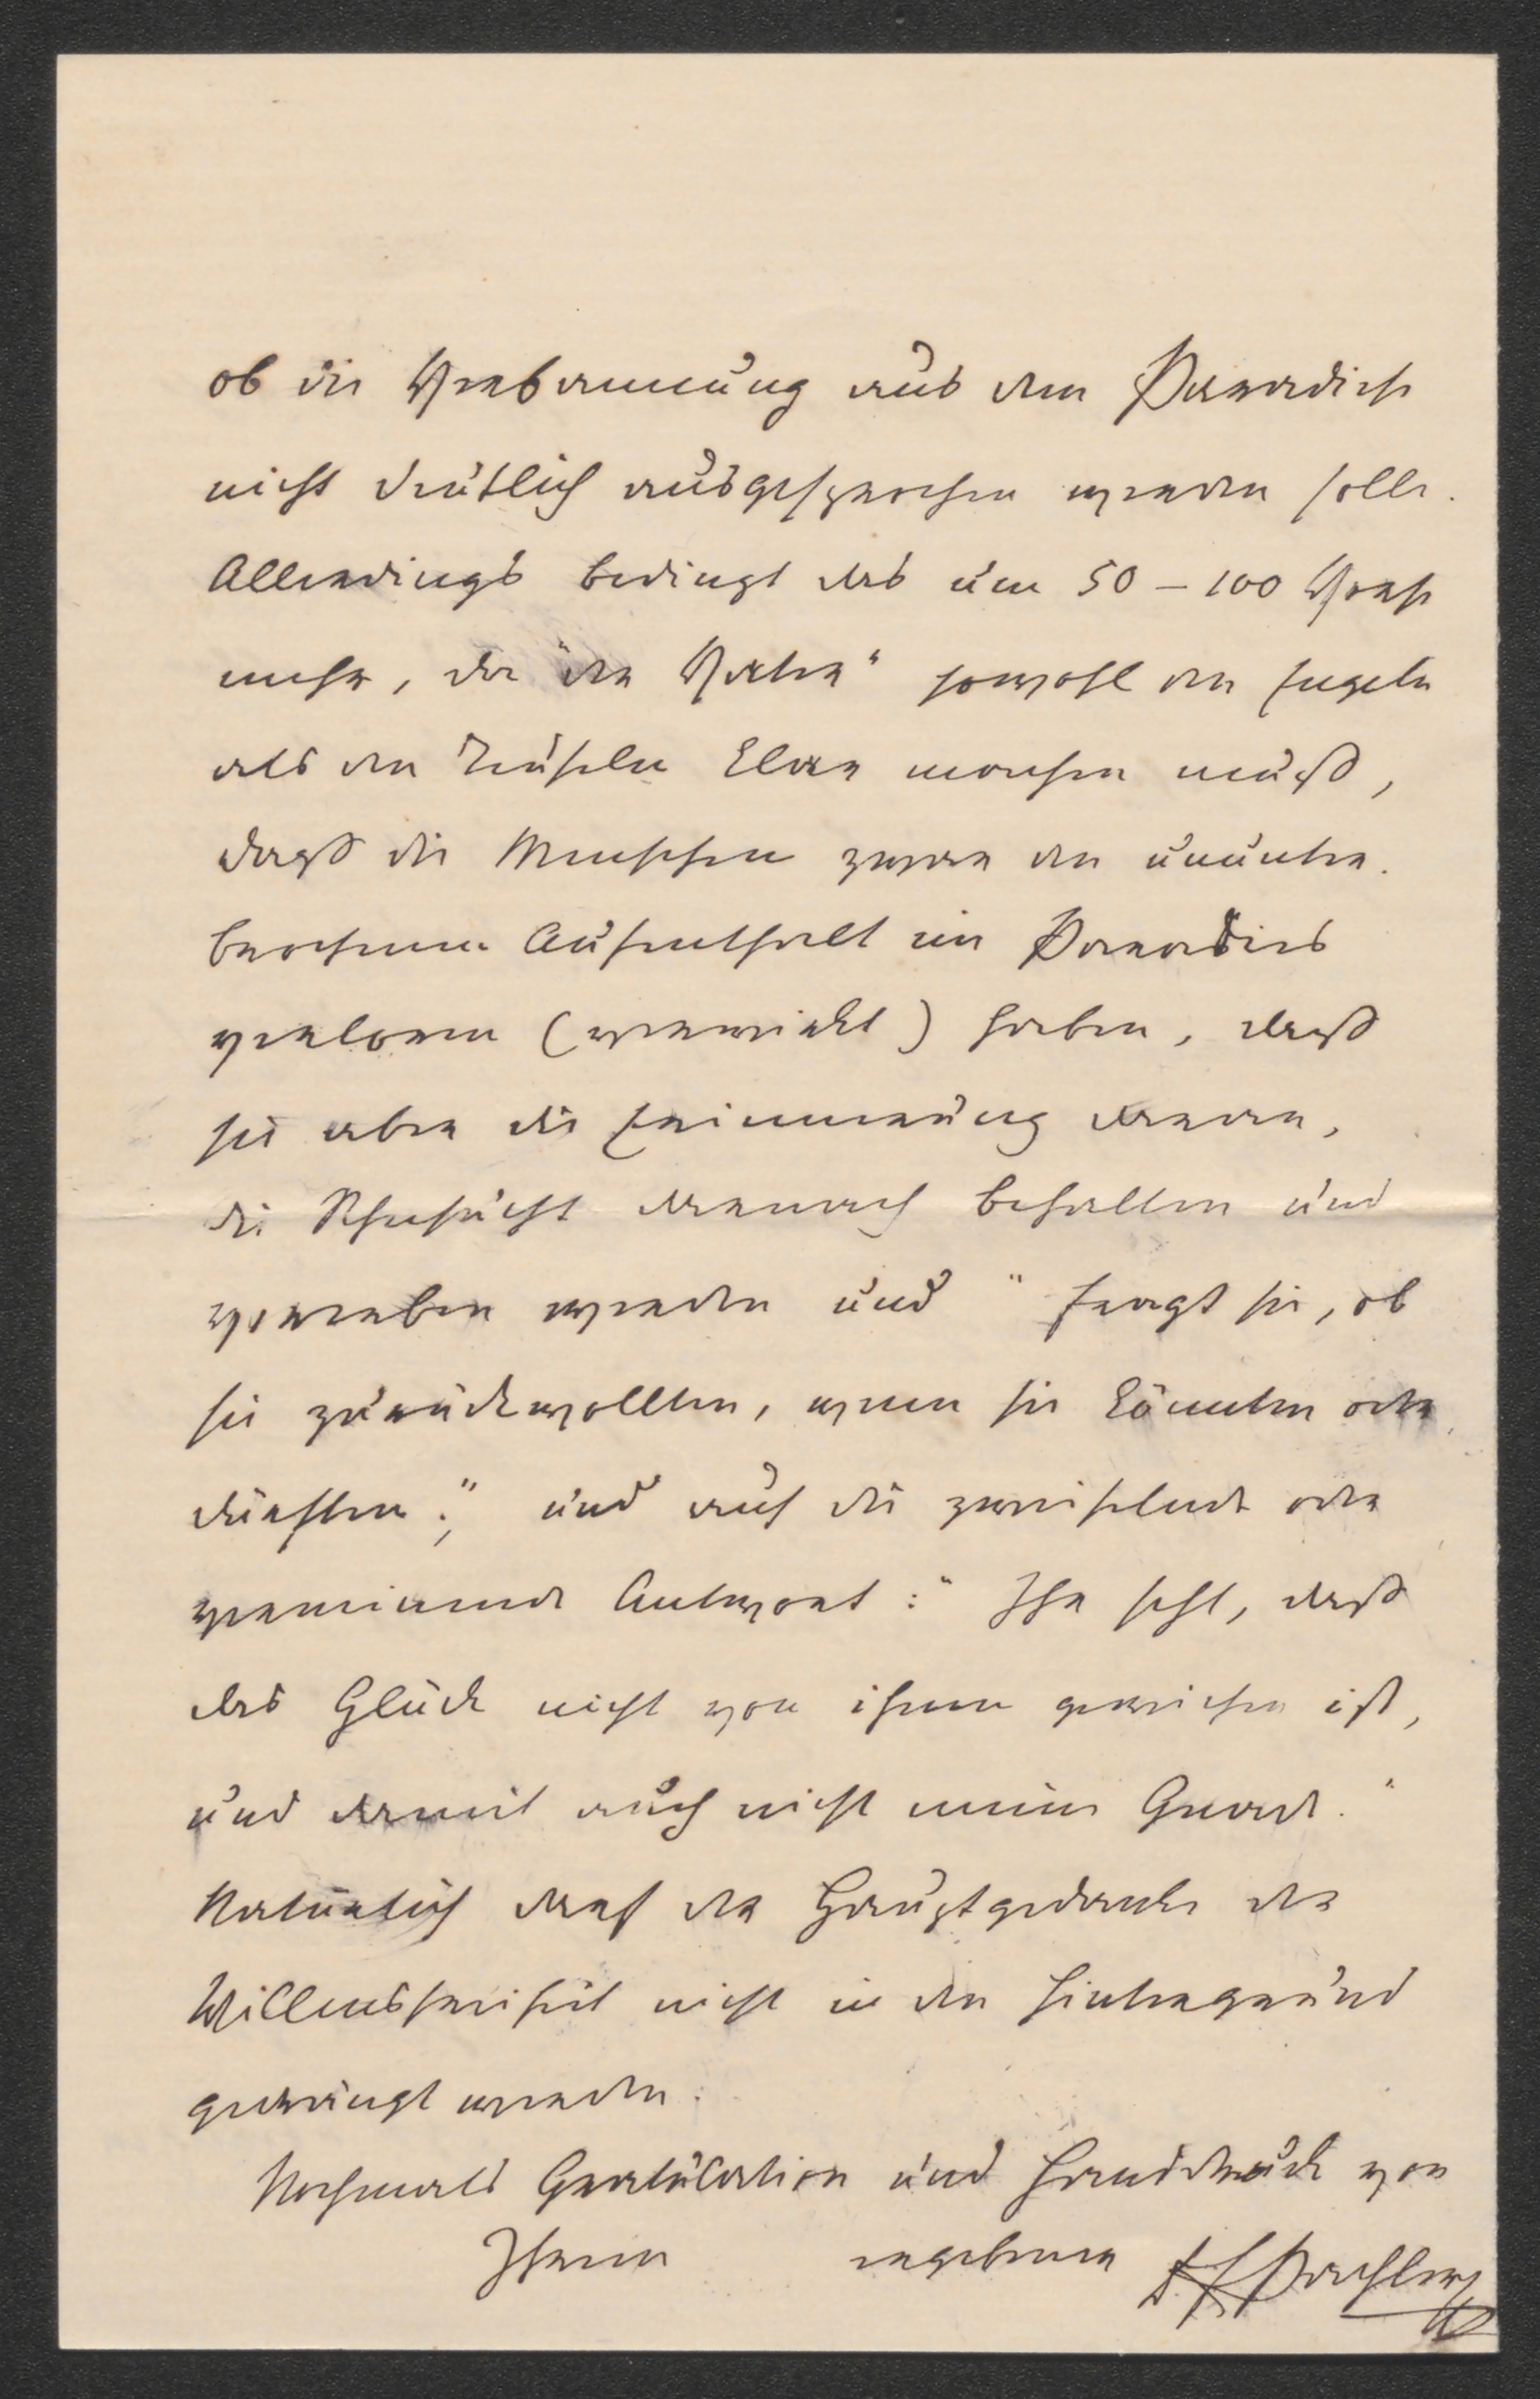 ob die Verbannung aus dem Paradiese
nicht deutlich ausgesprochen werden solle.
Allerdings bedingt das um 50 – 100 Verse
mehr, da "der Vater" sowohl den Engeln
als den Teufeln klar machen muß,
daß die Menschen zwar den ununter-
brochenen Aufenthalt im Paradies
verloren (verwirkt) haben, daß
sie aber die Erinnerung daran,
die Sehnsucht darnach behalten und
vererben werden und "fragt sie, ob
sie zurückwollten, wenn sie könnten oder
dürften", und auf die zweifelnde oder
verneinende Antwort: "Ihr seht, daß
das Glück nicht von ihnen gewichen ist,
und damit auch nicht meine Gnade."
Natürlich darf der Hauptgedanke der
Willensfreiheit nicht in den Hintergrund
gedrängt werden.
Nochmals Gratulation und Händedruck von
Ihrem ergebenen Pachler